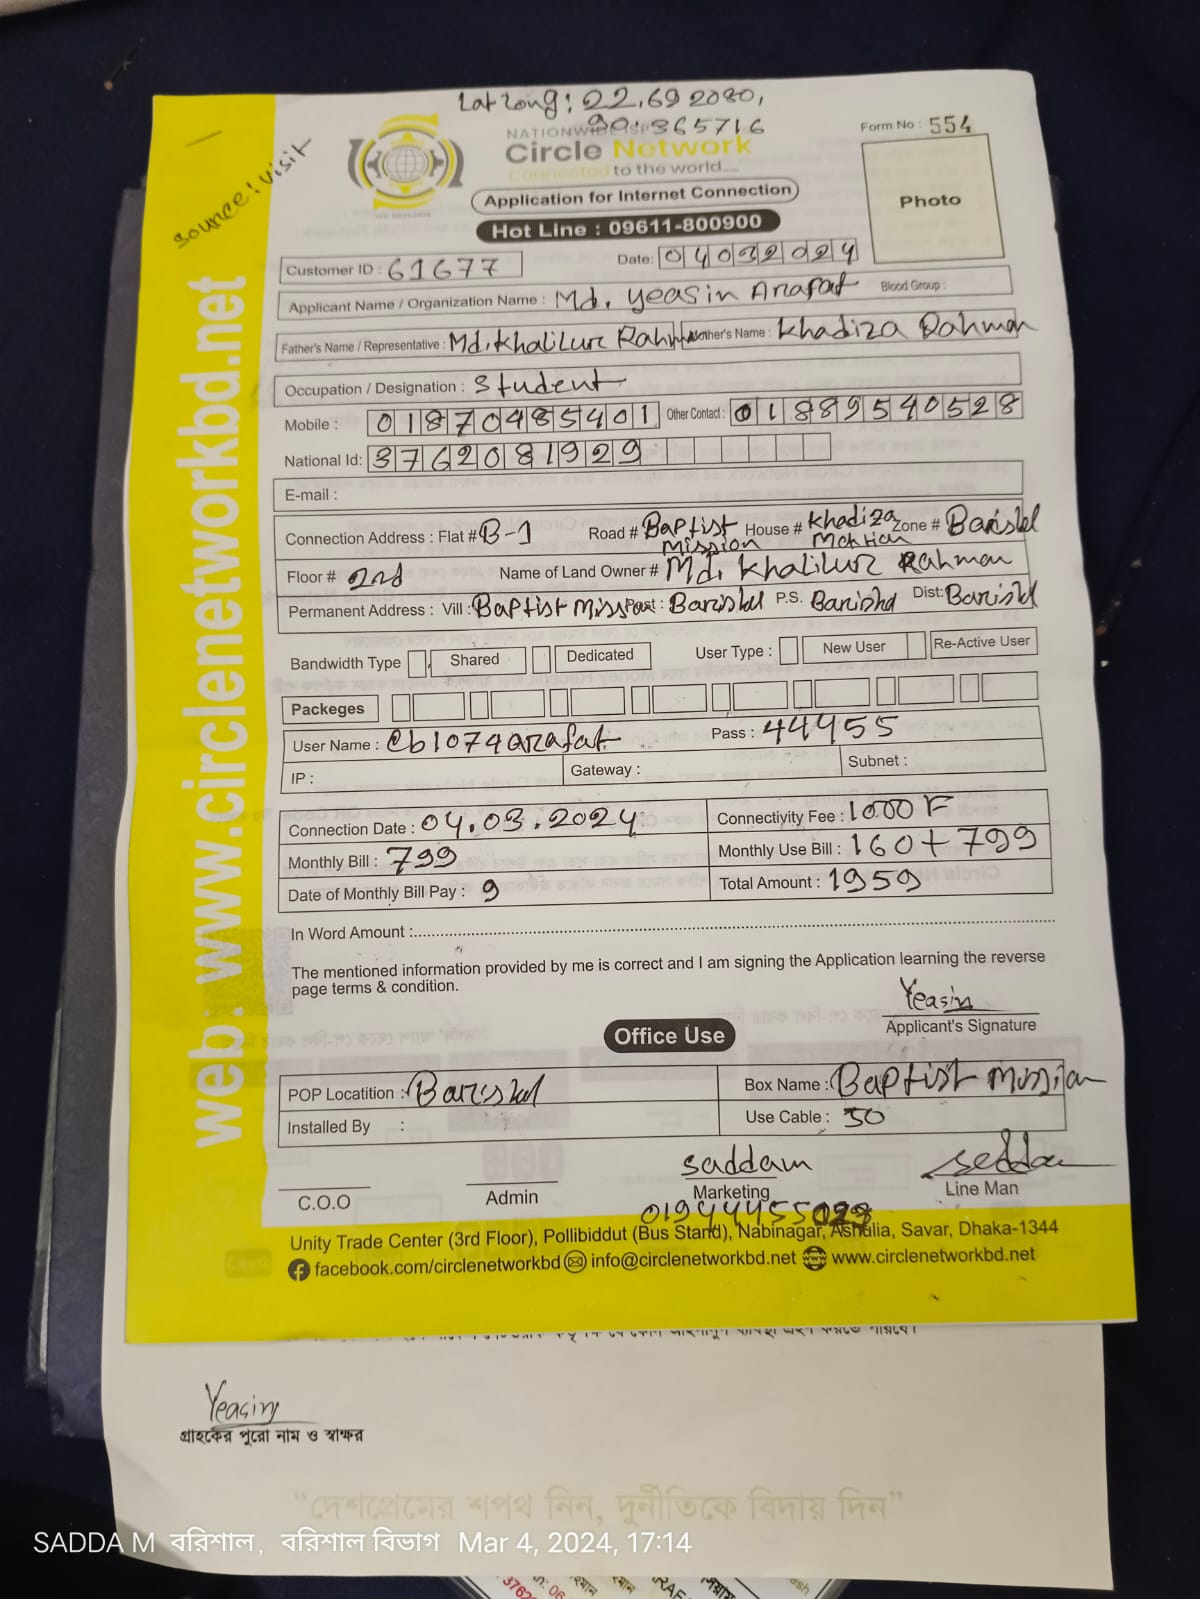 Lat Long: 22.692080,
90.365716
Source: visit
NATIONWIDE ISP
Circle Network
Connected to the world.....
Form No : 554
Photo
Application for Internet Connection
Hot Line : 09611-800900
Customer ID : 61677 Date: 04032024
Applicant Name / Organization Name : Md. Yeasin Arafat Blood Group :
Father's Name / Representative : Md. Khalilur Rahman Mother's Name : Khadiza Rahman
Occupation / Designation : Student
Mobile : 01870485401 Other Contact : 01889540528
National Id: 3762081929
E-mail :
Connection Address : Flat # B-1 Road # Baptist Mission House # Khadiza Zone # Barishal
Floor # 2nd Name of Land Owner # Md. Khalilur Rahman
Permanent Address : Vill : Baptist Miss Post : Barishal P.S. Barishal Dist: Barishal
Bandwidth Type Shared Dedicated User Type : New User Re-Active User
Packeges
User Name : cb1074arafat Pass : 44455
IP : Gateway : Subnet :
Connection Date : 04.03.2024 Connectivity Fee : 1000 F
Monthly Bill : 799 Monthly Use Bill : 160+799
Date of Monthly Bill Pay : 9 Total Amount : 1959
In Word Amount :
The mentioned information provided by me is correct and I am signing the Application learning the reverse
page terms & condition.
Yeasin
Applicant's Signature
Office Use
POP Locatition : Barishal Box Name : Baptist Mission
Installed By : Use Cable : 50
saddam saddam
C.O.O Admin Marketing Line Man
Unity Trade Center (3rd Floor), Pollibiddut (Bus Stand), Nabinagar, Ashulia, Savar, Dhaka-1344
facebook.com/circlenetworkbd info@circlenetworkbd.net www.circlenetworkbd.net
web: www.circlenetworkbd.net
Yeasin
গ্রাহকের পুরো নাম ও স্বাক্ষর
“দেশপ্রেমের শপথ নিন, দুর্নীতিকে বিদায় দিন”
SADDA M বরিশাল, বরিশাল বিভাগ Mar 4, 2024, 17:14